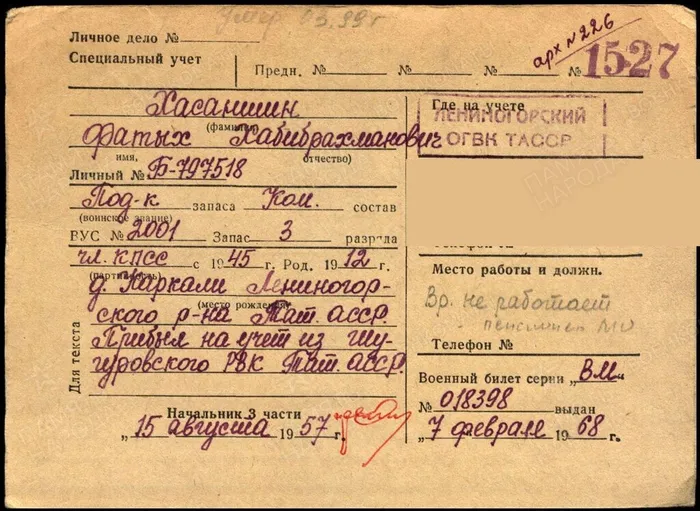 умер 03.99 г
Личное дело №
арх №226
Специальный учет
Предн. № № № № 1527
Хасаншин
(фамилия)
Фатых Хабибрахманович
имя, отчество)
Личный № Б-797518
Под-к запаса Ком. состав
(воинское звание)
ВУС № 2001 Запас 3 разряда
чл. КПСС с 1945 г. Род. 1912 г.
(партийность)
д. Каркали Лениногор-
(место рождения)
ского р-на Тат. АССР.
Для текста
Прибыл на учет из Шу-
гуровского РВК Тат. АССР.
Начальник 3 части
„15 августа 1957 г.
Где на учете
ЛЕНИНОГОРСКИЙ
ОГВК ТАССР
Телефон №
Место работы и должн.
Вр. не работает
пенсионер МО
Телефон №
Военный билет серии „ВМ"
№ 018398 выдан
„7 февраля 1968 г.